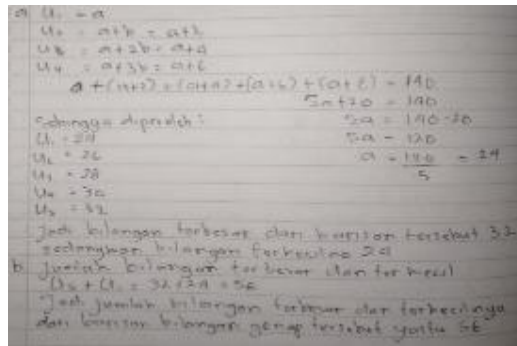 a. U₁ = a
U₂ = a+b = a+2
U₃ = a+2b = a+4
U₄ = a+3b = a+6
a + (a+2) + (a+4) + (a+6) + (a+8) = 140
5a+20 = 140
Sehingga diperoleh : 5a = 140-20
U₁ = 24 5a = 120
U₂ = 26 a = 120/5 = 24
U₃ = 28
U₄ = 30
U₅ = 32
Jadi bilangan terbesar dari barisan tersebut 32
sedangkan bilangan terkecilnya 24
b. Jumlah bilangan terbesar dan terkecil
U₅ + U₁ = 32+24 = 56
Jadi jumlah bilangan terbesar dan terkecilnya
dari barisan bilangan genap tersebut yaitu 56